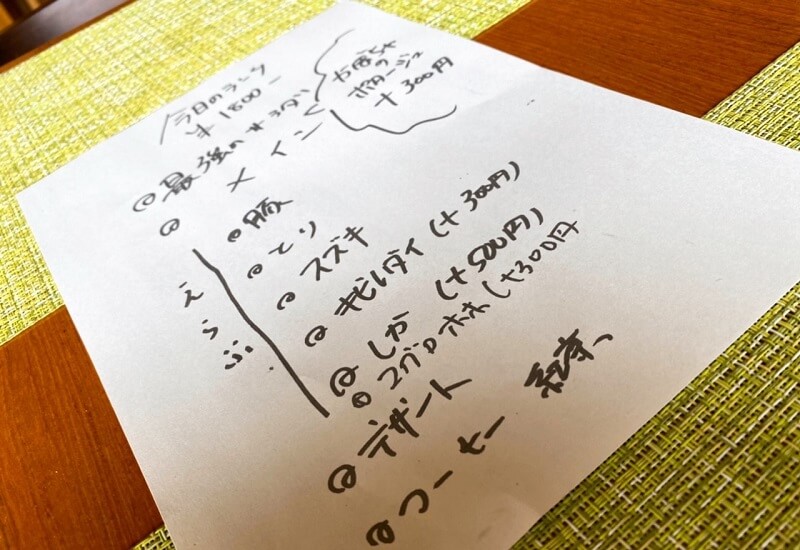 今日のランチ
¥1800-
最強のサラダ
かぼちゃ
の
ポタージュ
+300円
メイン
豚
とり
スズキ
キビレダイ(+300円)
しか(+500円)
マグロホホ(+300円
えらぶ
デザート
コーヒー 紅茶、